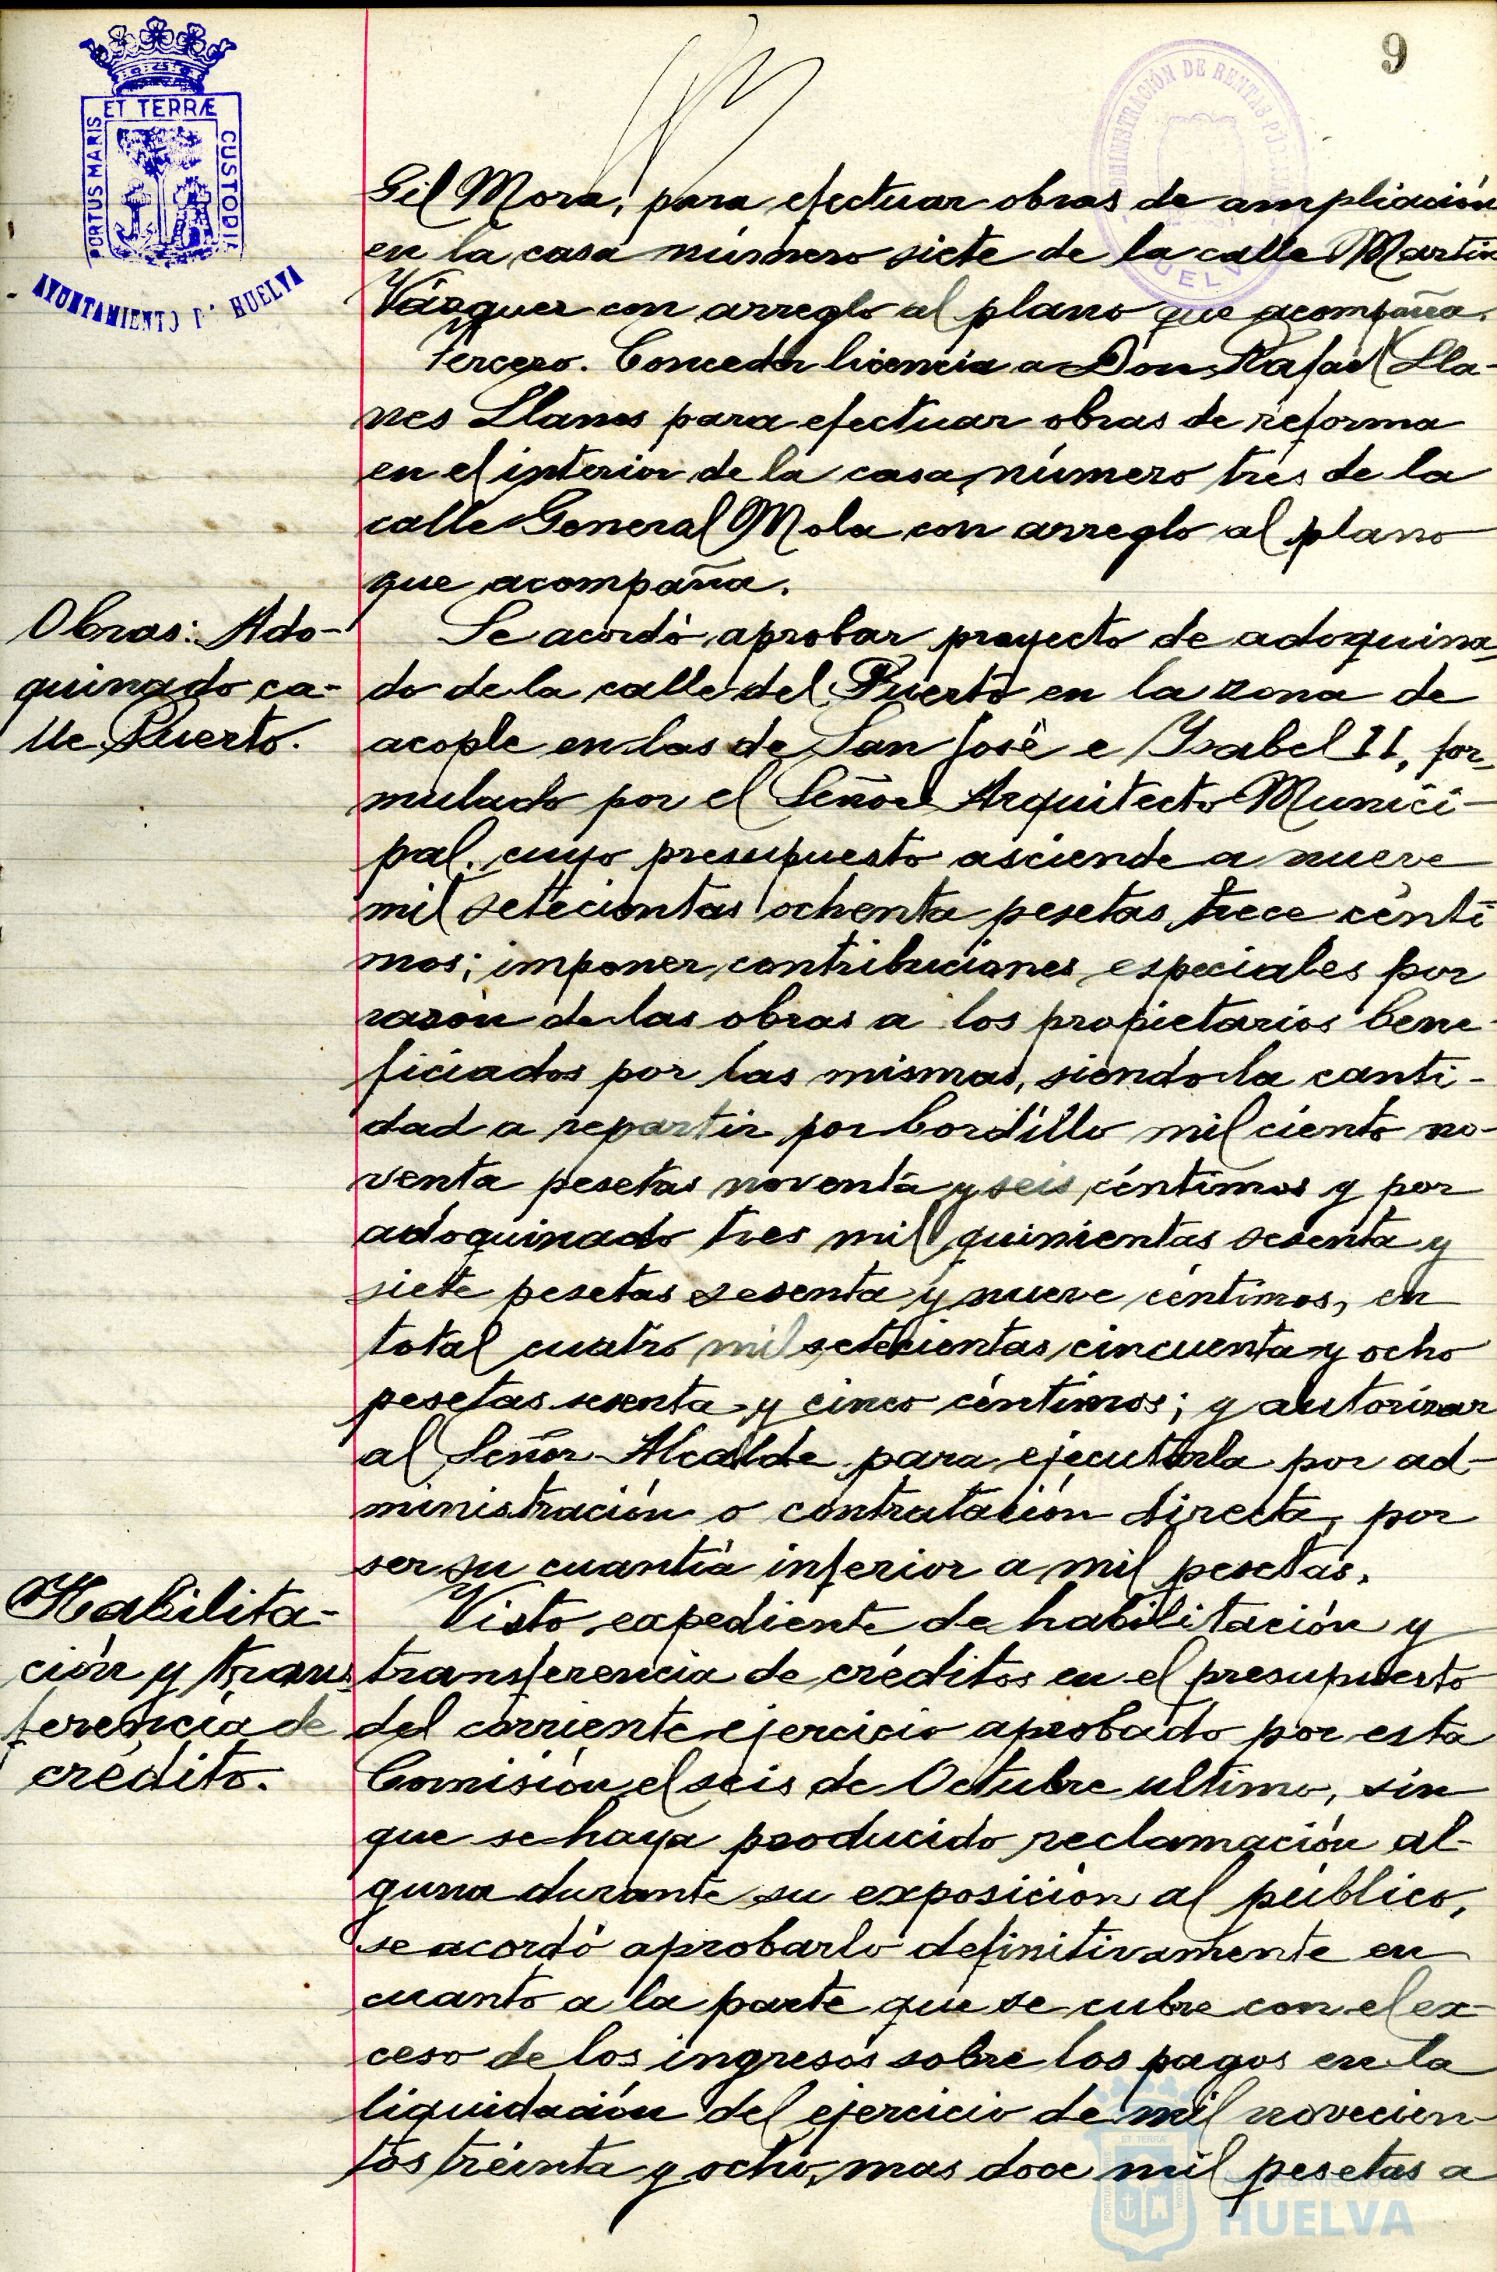 9
ET TERRÆ
PORTUS MARIS
CUSTODIA
AYUNTAMIENTO DE HUELVA
ADMINISTRACIÓN DE RENTAS PÚB
HUELVA
Gil Mora, para efectuar obras de ampliación
en la casa número siete de la calle Martín
Vázquez con arreglo al plano que acompaña.
Tercero. Conceder licencia a Don Rafael Lla-
nes Llanes para efectuar obras de reforma
en el interior de la casa número tres de la
calle General Mola con arreglo al plano
que acompaña.
Obras: Ado-
quinado ca-
lle Puerto.
Se acordó aprobar proyecto de adoquina-
do de la calle del Puerto en la zona de
acople en las de San José e Ysabel II, for-
mulado por el Señor Arquitecto Munici-
pal, cuyo presupuesto asciende a nueve
mil setecientas ochenta pesetas trece cénti
mos; imponer contribuciones especiales por
razón de las obras a los propietarios bene-
ficiados por las mismas, siendo la canti-
dad a repartir por bordillo mil ciento no-
venta pesetas noventa y seis céntimos y por
adoquinado tres mil quinientas sesenta y
siete pesetas sesenta y nueve céntimos, en
total cuatro mil setecientas cincuenta y ocho
pesetas sesenta y cinco céntimos; y autorizar
al Señor Alcalde para ejecutarla por ad-
ministración o contratación directa, por
ser su cuantía inferior a mil pesetas.
Habilita-
ción y trans
ferencia de
crédito.
Visto expediente de habilitación y
transferencia de créditos en el presupuesto
del corriente ejercicio aprobado por esta
Comisión el seis de Octubre ultimo, sin
que se haya producido reclamación al-
guna durante su exposición al público,
se acordó aprobarlo definitivamente en
cuanto a la parte que se cubre con el ex-
ceso de los ingresos sobre los pagos en la
liquidación del ejercicio de mil novecien
tos treinta y ocho, mas doce mil pesetas a
Ayuntamiento de
HUELVA